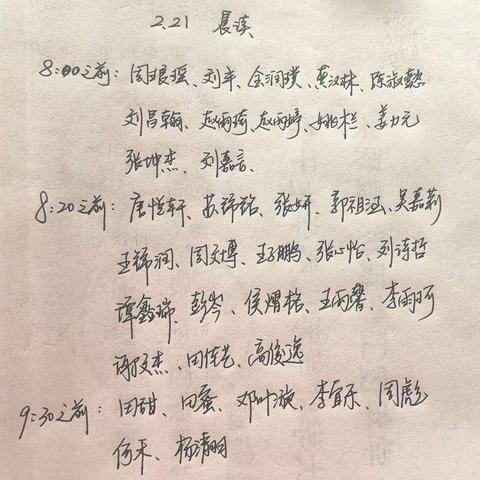 2.21 晨读
8:00之前：周琅瑶、刘丰、金润璞、黄汉林、陈淑懿
刘昌翰、赵雨琦、赵雨婷、姚栏、姜力元
张坤杰、刘嘉言、
8:20之前：唐恺轩、苏锦铭、张妍、郭祖涵、吴嘉莉
王锦润、周文博、王子鹏、张心怡、刘诗哲
谭鑫瑞、彭岑、侯熠格、王雨馨、李雨珂
谢文杰、田佳艺、高俊逸
9:30之前：田甜、田蜜、邓叶漩、李宜乐、周彪
何禾、杨清明